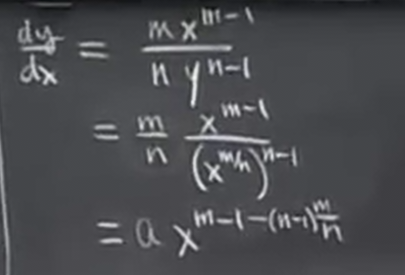 dy/dx = m x^{m-1} / n y^{n-1}
= m/n x^{m-1} / (x^{m/n})^{n-1}
= a x^{m-1-(n-1)m/n}